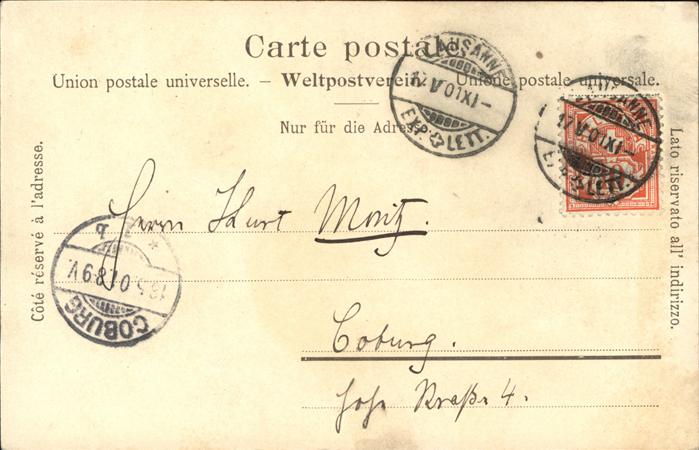 Carte postale.
Union postale universelle. – Weltpostverein. – Unione postale universale.
Nur für die Adresse.
Côté réservé à l'adresse.
Lato riservato all' indirizzo.
LAUSANNE
17.V.01.XI–
EXP. LETT.
LAUSANNE
17.V.01.XI–
EXP. LETT.
Herrn Kurt Moritz.
COBURG
Coburg.
Hohe Straße 4.